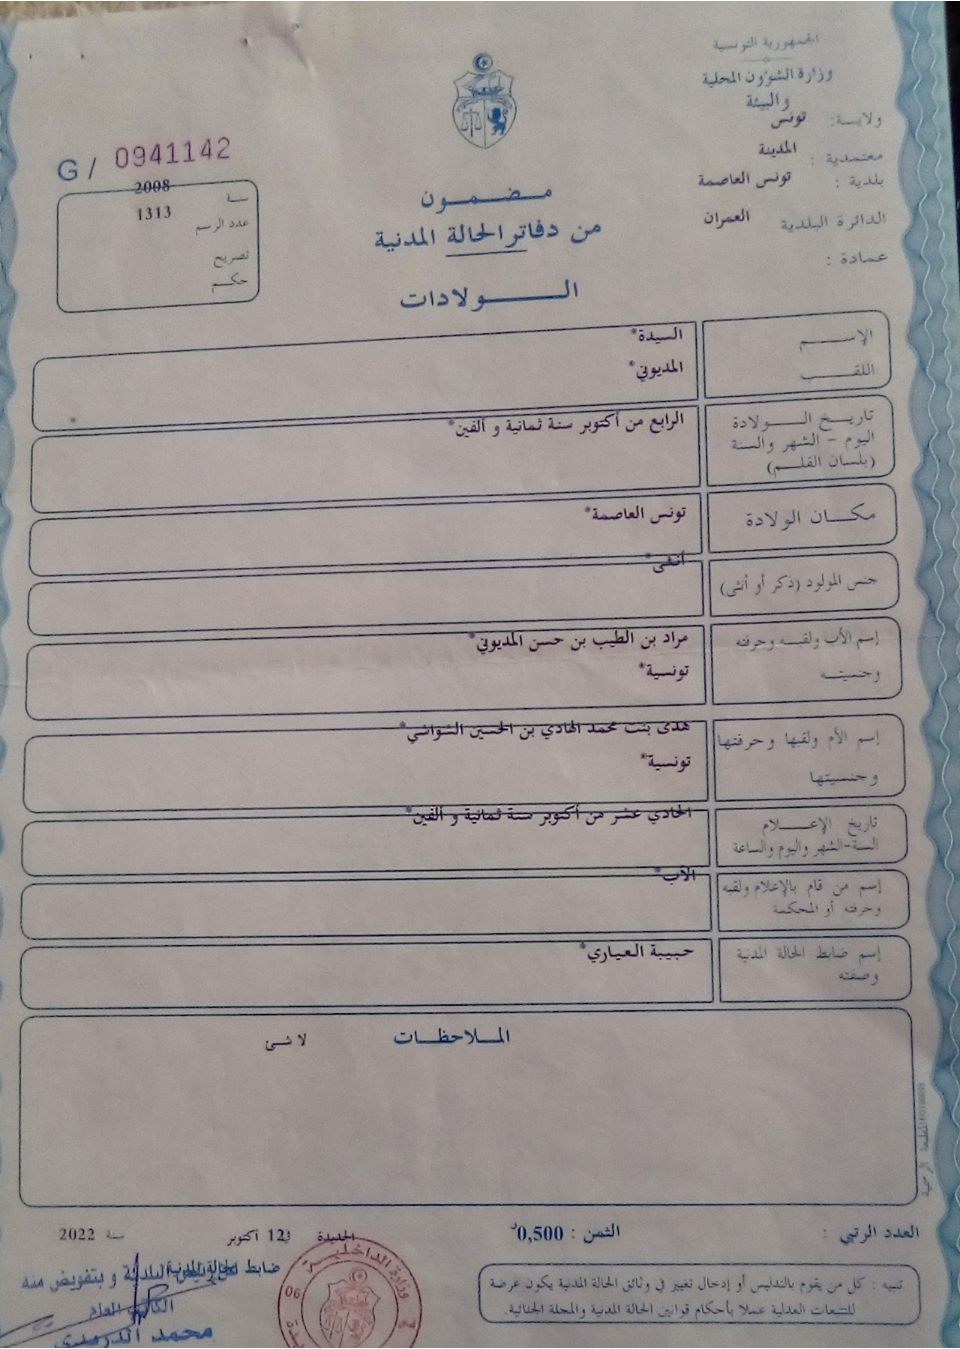 الجمهورية التونسية
وزارة الشؤون المحلية
والبيئة
ولايـة: تونس
معتمدية : المدينة
بلدية : تونس العاصمة
الدائرة البلدية العمران
عمادة :
G / 0941142
سنة 2008
عدد الرسم 1313
تصريح
حكم
مضمون
من دفاتر الحالة المدنية
الولادات
الإسم السيدة*
اللقب المديوني*
*
تاريخ الولادة
اليوم - الشهر والسنة
(بلسان القلم)
الرابع من أكتوبر سنة ثمانية و ألفين*
مكان الولادة تونس العاصمة*
جنس المولود (ذكر أو أنثى) أنثى*
إسم الأب ولقبه وحرفته مراد بن الطيب بن حسن المديوني*
وجنسيته تونسية*
إسم الأم ولقبها وحرفتها هدى بنت محمد الهادي بن الحسين الشواشي*
وجنسيتها تونسية*
تاريخ الإعلام
السنة-الشهر واليوم والساعة
الحادي عشر من أكتوبر سنة ثمانية و ألفين*
إسم من قام بالإعلام ولقبه
وحرفته أو المحكمة
الأب*
إسم ضابط الحالة المدنية
وصفته
حبيبة العياري*
الملاحظات
لا شئ
المطبعة الرسمية
العدد الرتبي :
الثمن : 0,500د
الجديدة في 12 أكتوبر سنة 2022
تنبيه : كل من يقوم بالتدليس أو إدخال تغيير في وثائق الحالة المدنية يكون عرضة
للتتبعات العدلية عملا بأحكام قوانين الحالة المدنية والمجلة الجنائية.
ضابط الحالة المدنية
البلدية و بتفويض منه
الكاتب العام
محمد
وزارة الداخلية
06